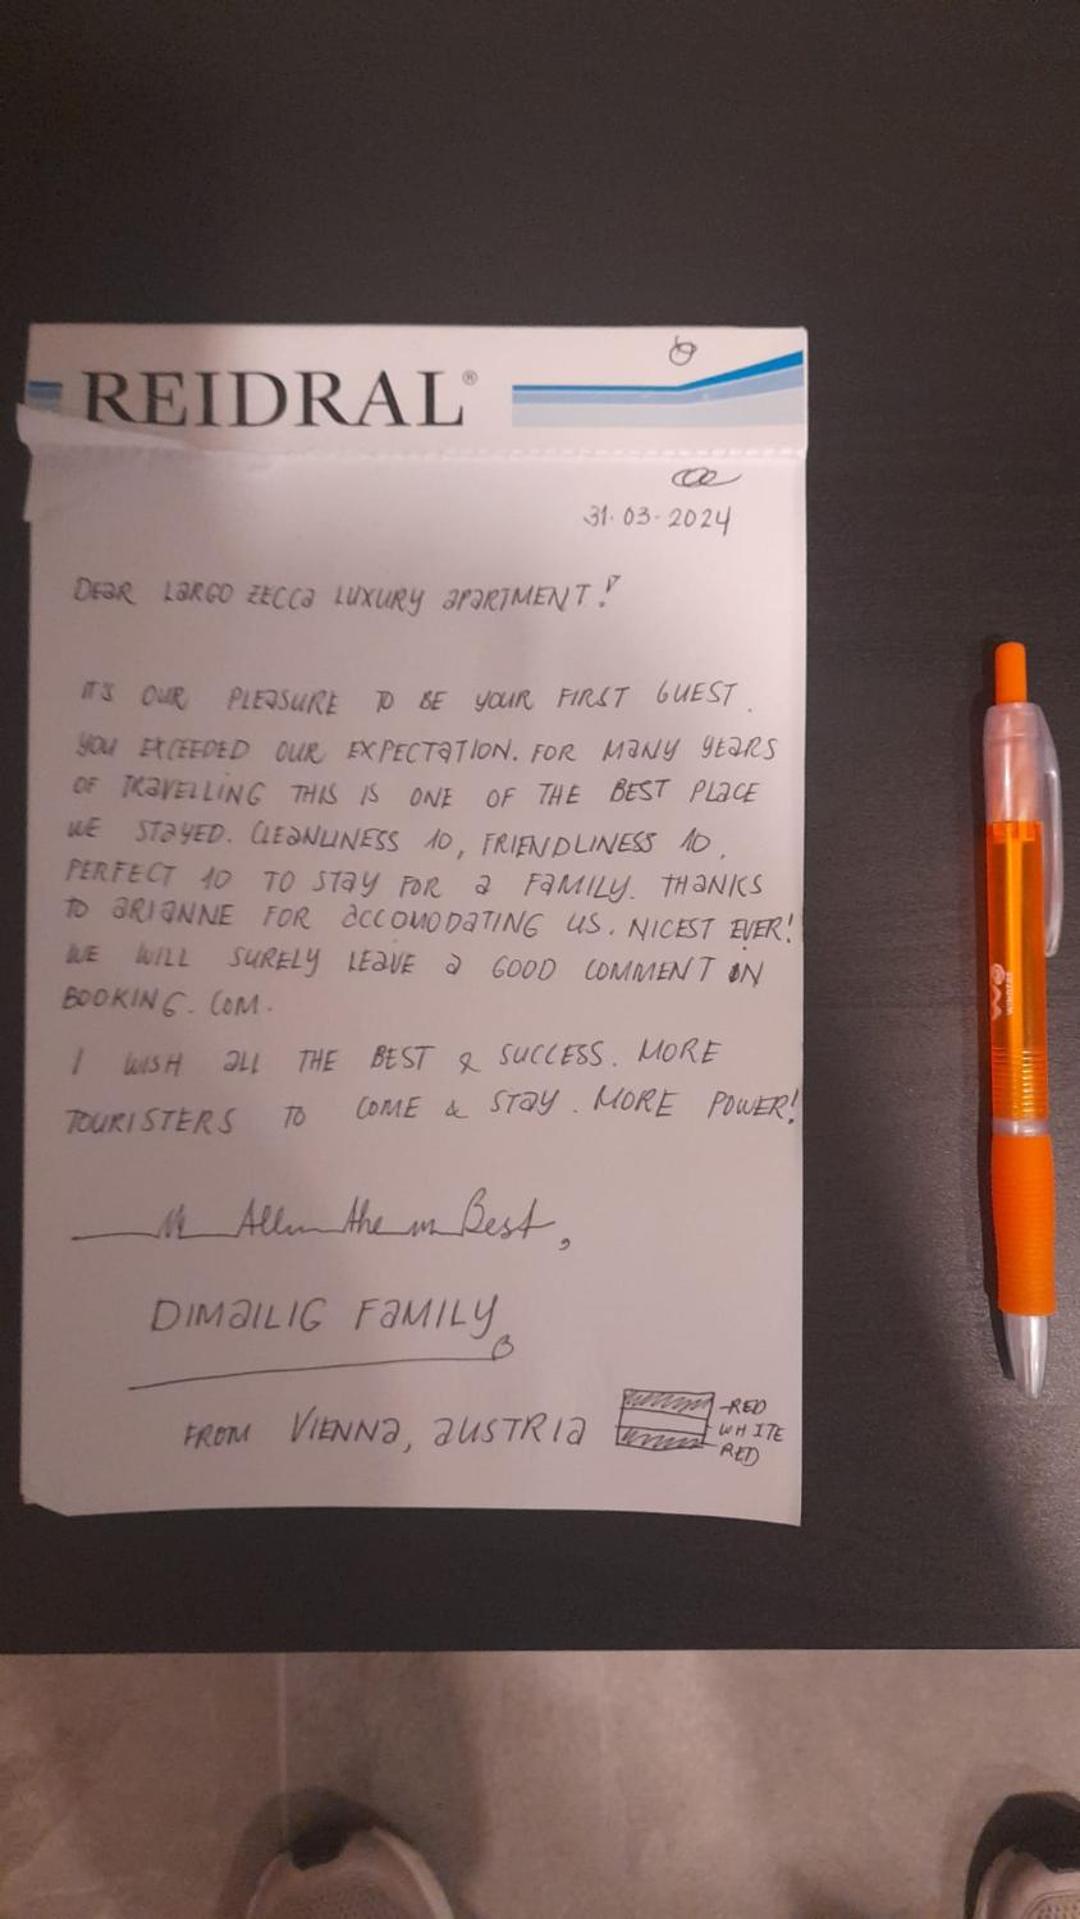 REIDRAL®
31.03-2024
DEAR LARGO ZECCA LUXURY APARTMENT!
IT'S OUR PLEASURE TO BE YOUR FIRST GUEST.
YOU EXCEEDED OUR EXPECTATION. FOR MANY YEARS
OF TRAVELLING THIS IS ONE OF THE BEST PLACE
WE STAYED. CLEANLINESS 10, FRIENDLINESS 10,
PERFECT 10 TO STAY FOR A FAMILY. THANKS
TO ARIANNE FOR ACCOMODATING US. NICEST EVER!
WE WILL SURELY LEAVE A GOOD COMMENT IN
BOOKING.COM.
I WISH ALL THE BEST & SUCCESS. MORE
TOURISTERS TO COME & STAY. MORE POWER!
All the Best,
DIMAILIG FAMILY
FROM VIENNA, AUSTRIA
-RED
WHITE
RED